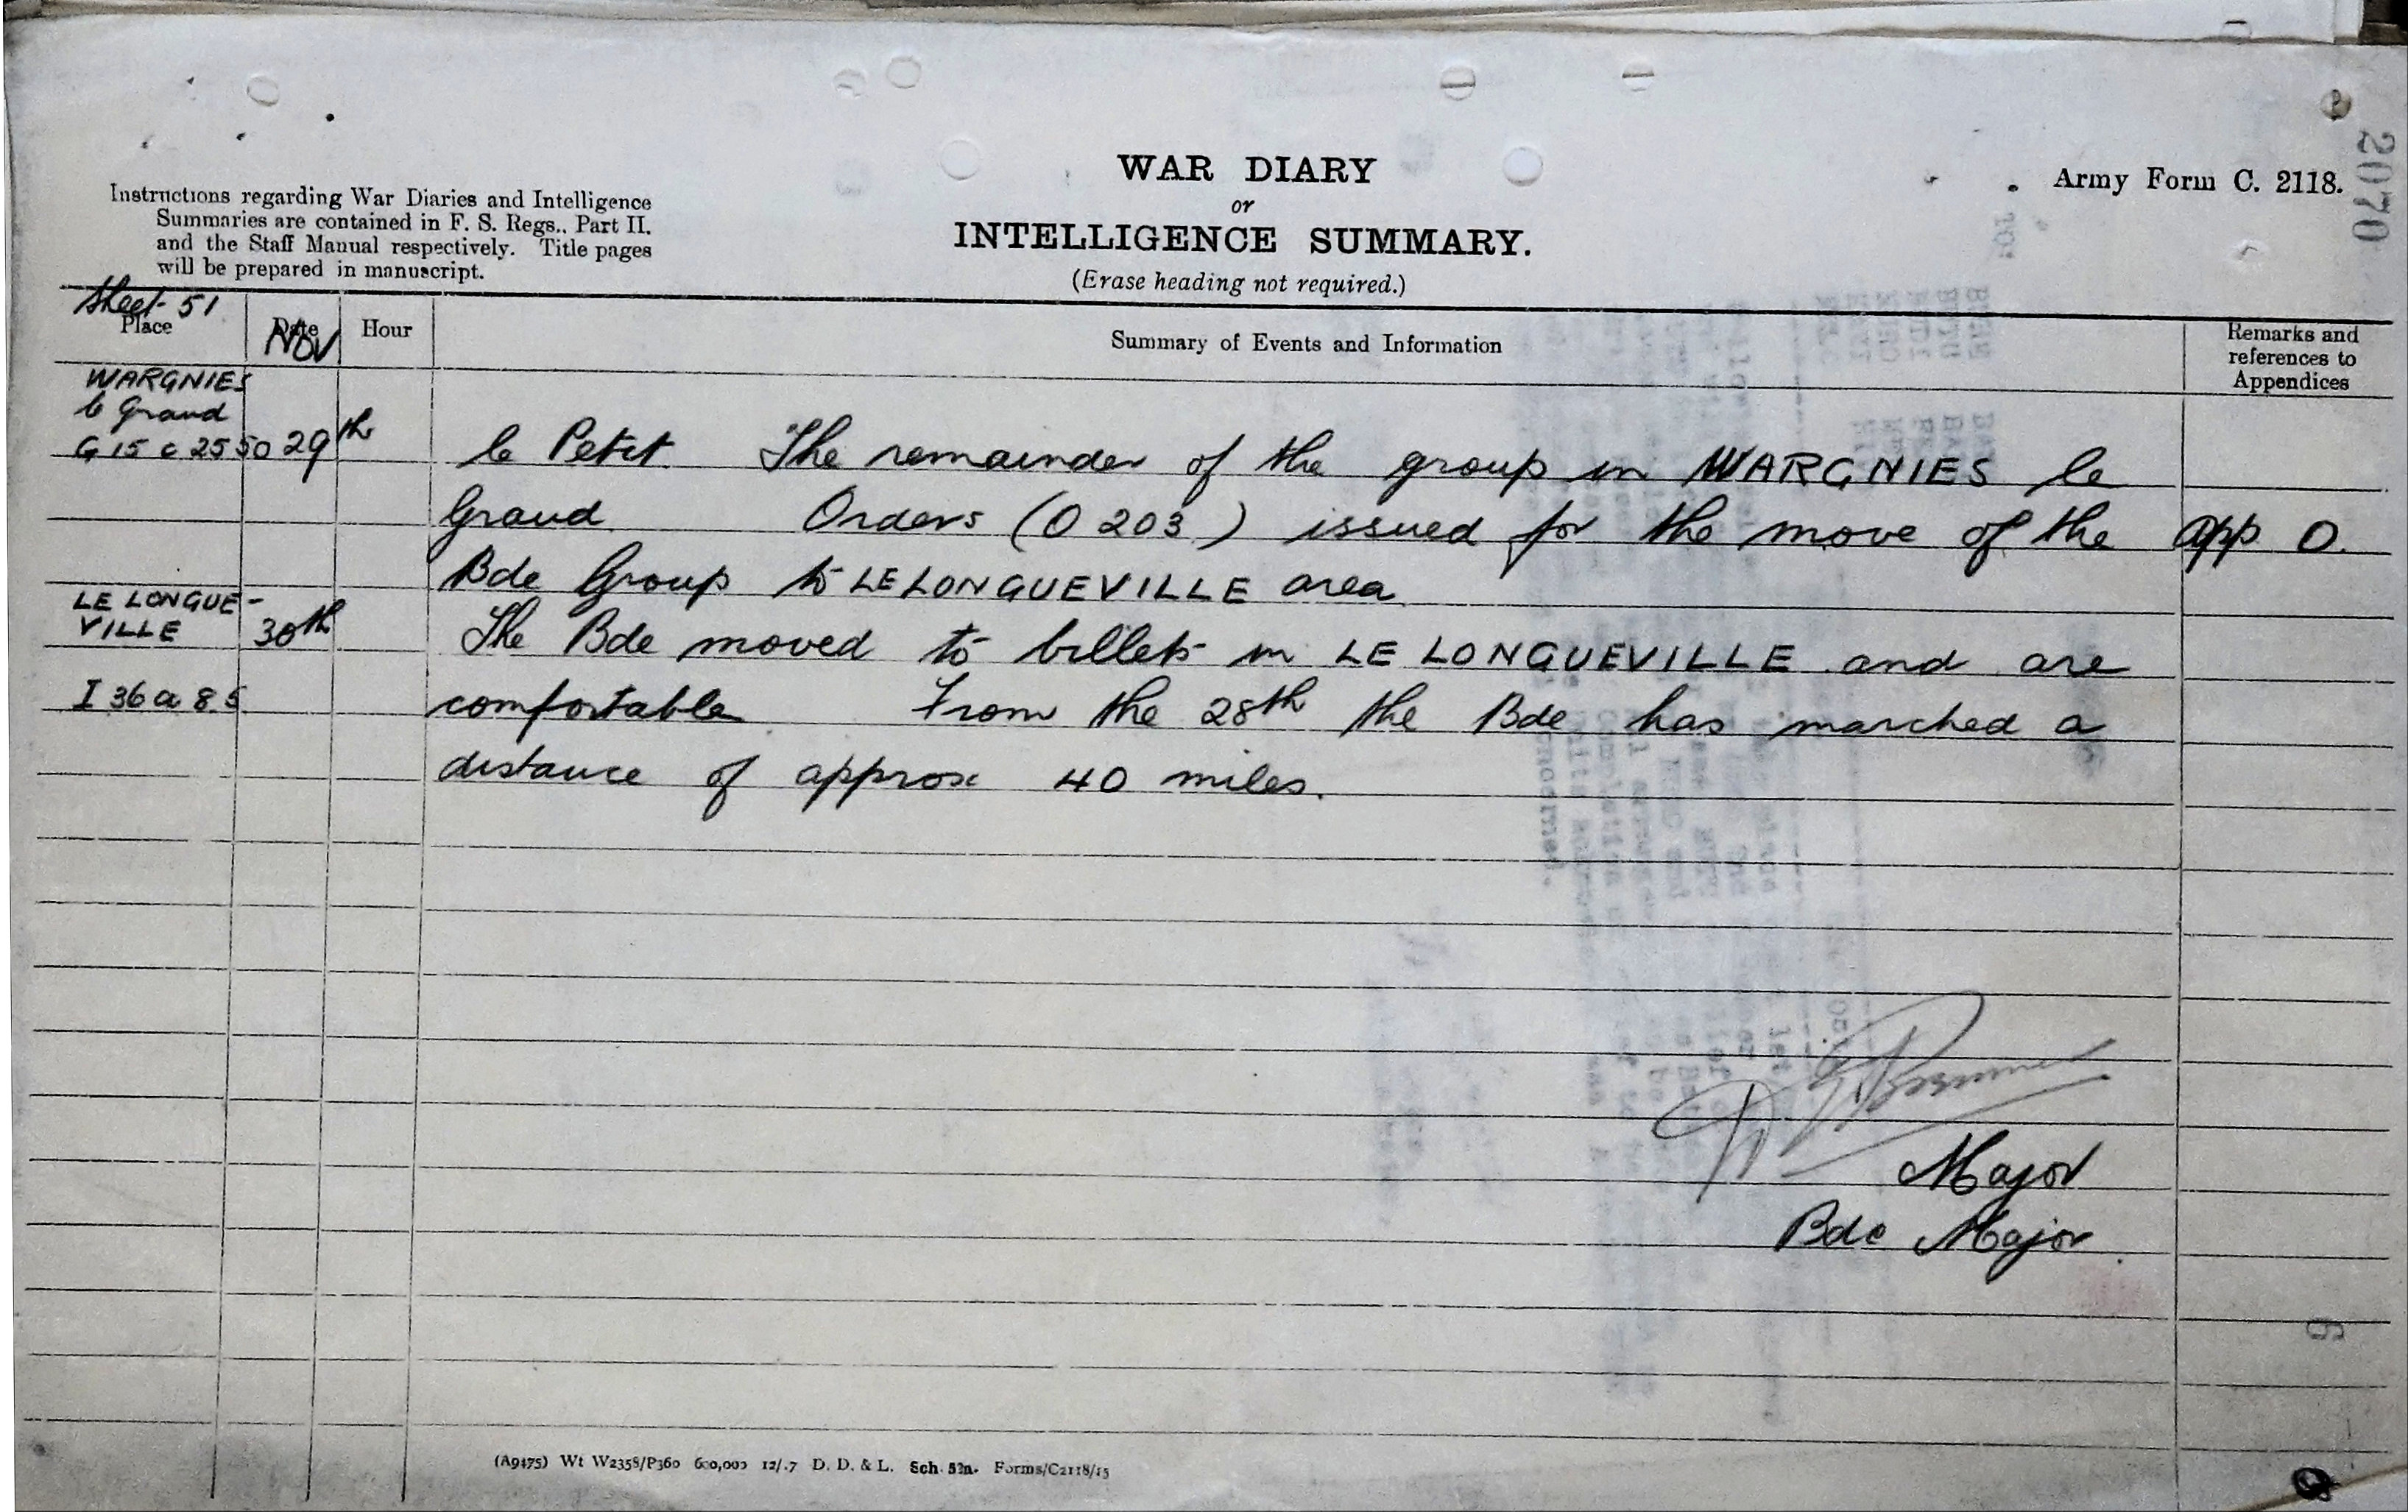 WAR DIARY
or
INTELLIGENCE SUMMARY.
(Erase heading not required.)
Army Form C. 2118.
2070
Instructions regarding War Diaries and Intelligence
Summaries are contained in F. S. Regs., Part II.
and the Staff Manual respectively. Title pages
will be prepared in manuscript.
Sheet 51
Place
Date
Nov
Hour
Summary of Events and Information
Remarks and
references to
Appendices
WARGNIES
le Grand
G 15 c 25 50 29th le Petit. The remainder of the group in WARGNIES le
Grand. Orders (O 203) issued for the move of the App O.
Bde Group to LE LONGUEVILLE area.
LE LONGUE-
VILLE 30th The Bde moved to billets in LE LONGUEVILLE and are
I 36 a 8.5 comfortable. From the 28th the Bde has marched a
distance of approx 40 miles.
Major
Bde Major
6
(A9475) Wt W2358/P360 600,000 12/.7 D. D. & L. Sch. 52a. Forms/C2118/15